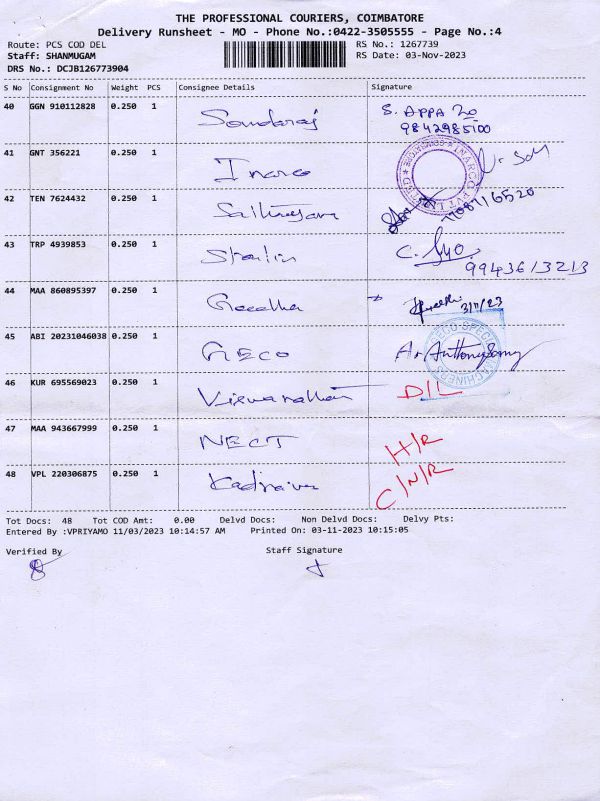 THE PROFESSIONAL COURIERS, COIMBATORE
Delivery Runsheet - MO - Phone No.:0422-3505555 - Page No.:4
Route: PCS COD DEL RS No.: 1267739
Staff: SHANMUGAM RS Date: 03-Nov-2023
DRS No.: DCJB126773904
S No Consignment No Weight PCS Consignee Details Signature
40 GGN 910112828 0.250 1 Soundaraj S. APPA
9842985100
41 GNT 356221 0.250 1 Inarco
42 TEN 7624432 0.250 1 7708716520
43 TRP 4939853 0.250 1 Stalin C.
9943613213
44 MAA 860895397 0.250 1 Geetha 3/11/23
45 ABI 20231046038 0.250 1 GECO A. Anthony Samy
46 KUR 695569023 0.250 1 Viswanathan D/L
47 MAA 943667999 0.250 1 NECT H/R
48 VPL 220306875 0.250 1 C/N/R
Tot Docs: 48 Tot COD Amt: 0.00 Delvd Docs: Non Delvd Docs: Delvy Pts:
Entered By :VPRIYAMO 11/03/2023 10:14:57 AM Printed On: 03-11-2023 10:15:05
Verified By Staff Signature